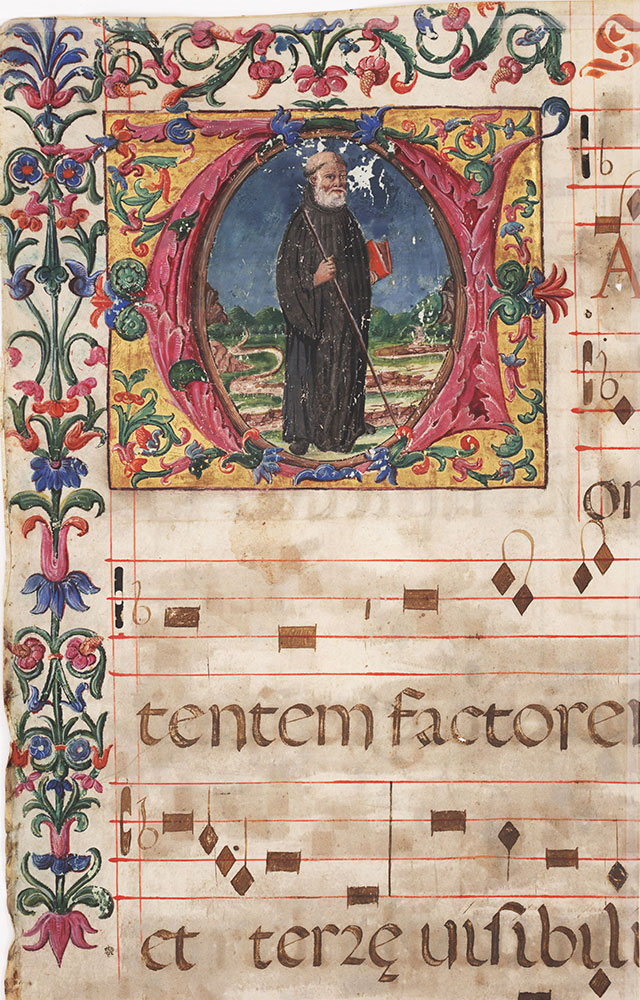 S
A
om
tentem factorem
et terrę uisibili